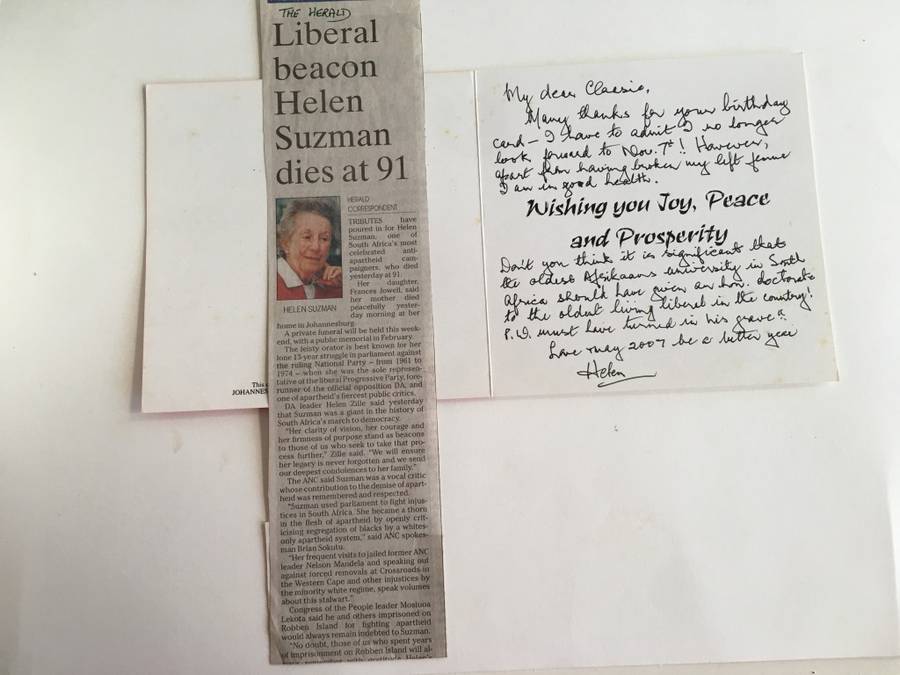 THE HERALD
Liberal
beacon
Helen
Suzman
dies at 91
HERALD
CORRESPONDENT
TRIBUTES have
poured in for Helen
Suzman, one of
South Africa's most
celebrated anti-
apartheid cam-
paigners, who died
yesterday at 91.
Her daughter,
Frances Jowell, said
her mother died
peacefully yester-
day morning at her
HELEN SUZMAN
home in Johannesburg.
A private funeral will be held this week-
end, with a public memorial in February.
The feisty orator is best known for her
lone 13-year struggle in parliament against
the ruling National Party – from 1961 to
1974 – when she was the sole represen-
tative of the liberal Progressive Party, fore-
runner of the official opposition DA, and
one of apartheid's fiercest public critics.
DA leader Helen Zille said yesterday
that Suzman was a giant in the history of
South Africa's march to democracy.
"Her clarity of vision, her courage and
her firmness of purpose stand as beacons
to those of us who seek to take that pro-
cess further," Zille said. "We will ensure
her legacy is never forgotten and we send
our deepest condolences to her family."
The ANC said Suzman was a vocal critic
whose contribution to the demise of apart-
heid was remembered and respected.
"Suzman used parliament to fight injus-
tices in South Africa. She became a thorn
in the flesh of apartheid by openly crit-
icising segregation of blacks by a whites-
only apartheid system," said ANC spokes-
man Brian Sokutu.
"Her frequent visits to jailed former ANC
leader Nelson Mandela and speaking out
against forced removals at Crossroads in
the Western Cape and other injustices by
the minority white regime, speak volumes
about this stalwart."
Congress of the People leader Mosiuoa
Lekota said he and others imprisoned on
Robben Island for fighting apartheid
would always remain indebted to Suzman.
"No doubt, those of us who spent years
of imprisonment on Robben Island will al-
This
JOHANNES
My dear Classie,
Many thanks for your birthday
card – I have to admit I no longer
look forward to Nov. 7th!! However,
apart from having broken my left femur
I am in good health.
Wishing you Joy, Peace
and Prosperity
Don't you think it is significant that
the oldest Afrikaans university in South
Africa should have given an hon. doctorate
to the oldest living liberal in the country!
P.W. must have turned in his grave!!
Love & may 2007 be a better year
Helen